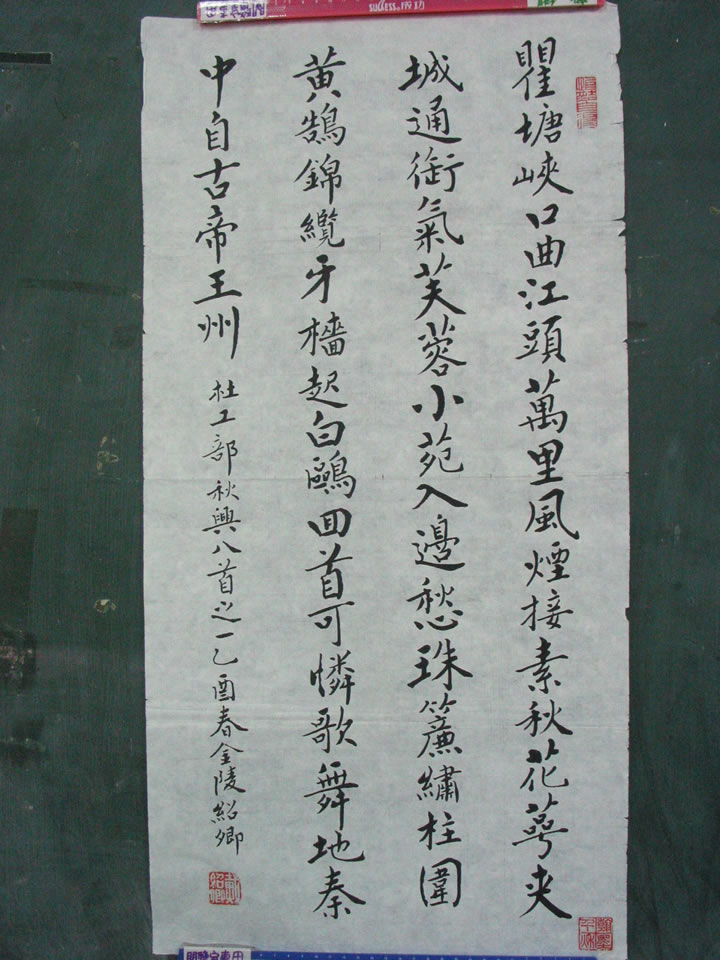 瞿塘峽口曲江頭萬里風煙接素秋花萼夾
城通衘氣芙蓉小苑入邊愁珠簾繡柱圍
黃鵠錦纜牙檣起白鷗回首可憐歌舞地秦
中自古帝王州
杜工部秋興八首之一乙酉春金陵紹卿
SUCCESS